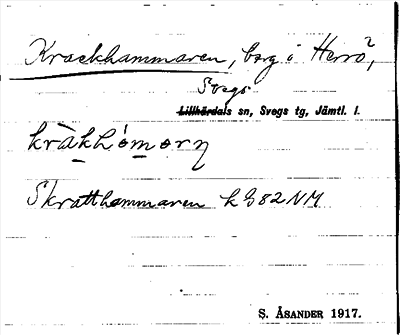 Krackhammaren, berg i Herrö,
Svegs
Lillhärdals sn, Svegs tg, Jämtl. l.
kràkhómorn
Skratthammaren k G 82 NM
S. ÅSANDER 1917.